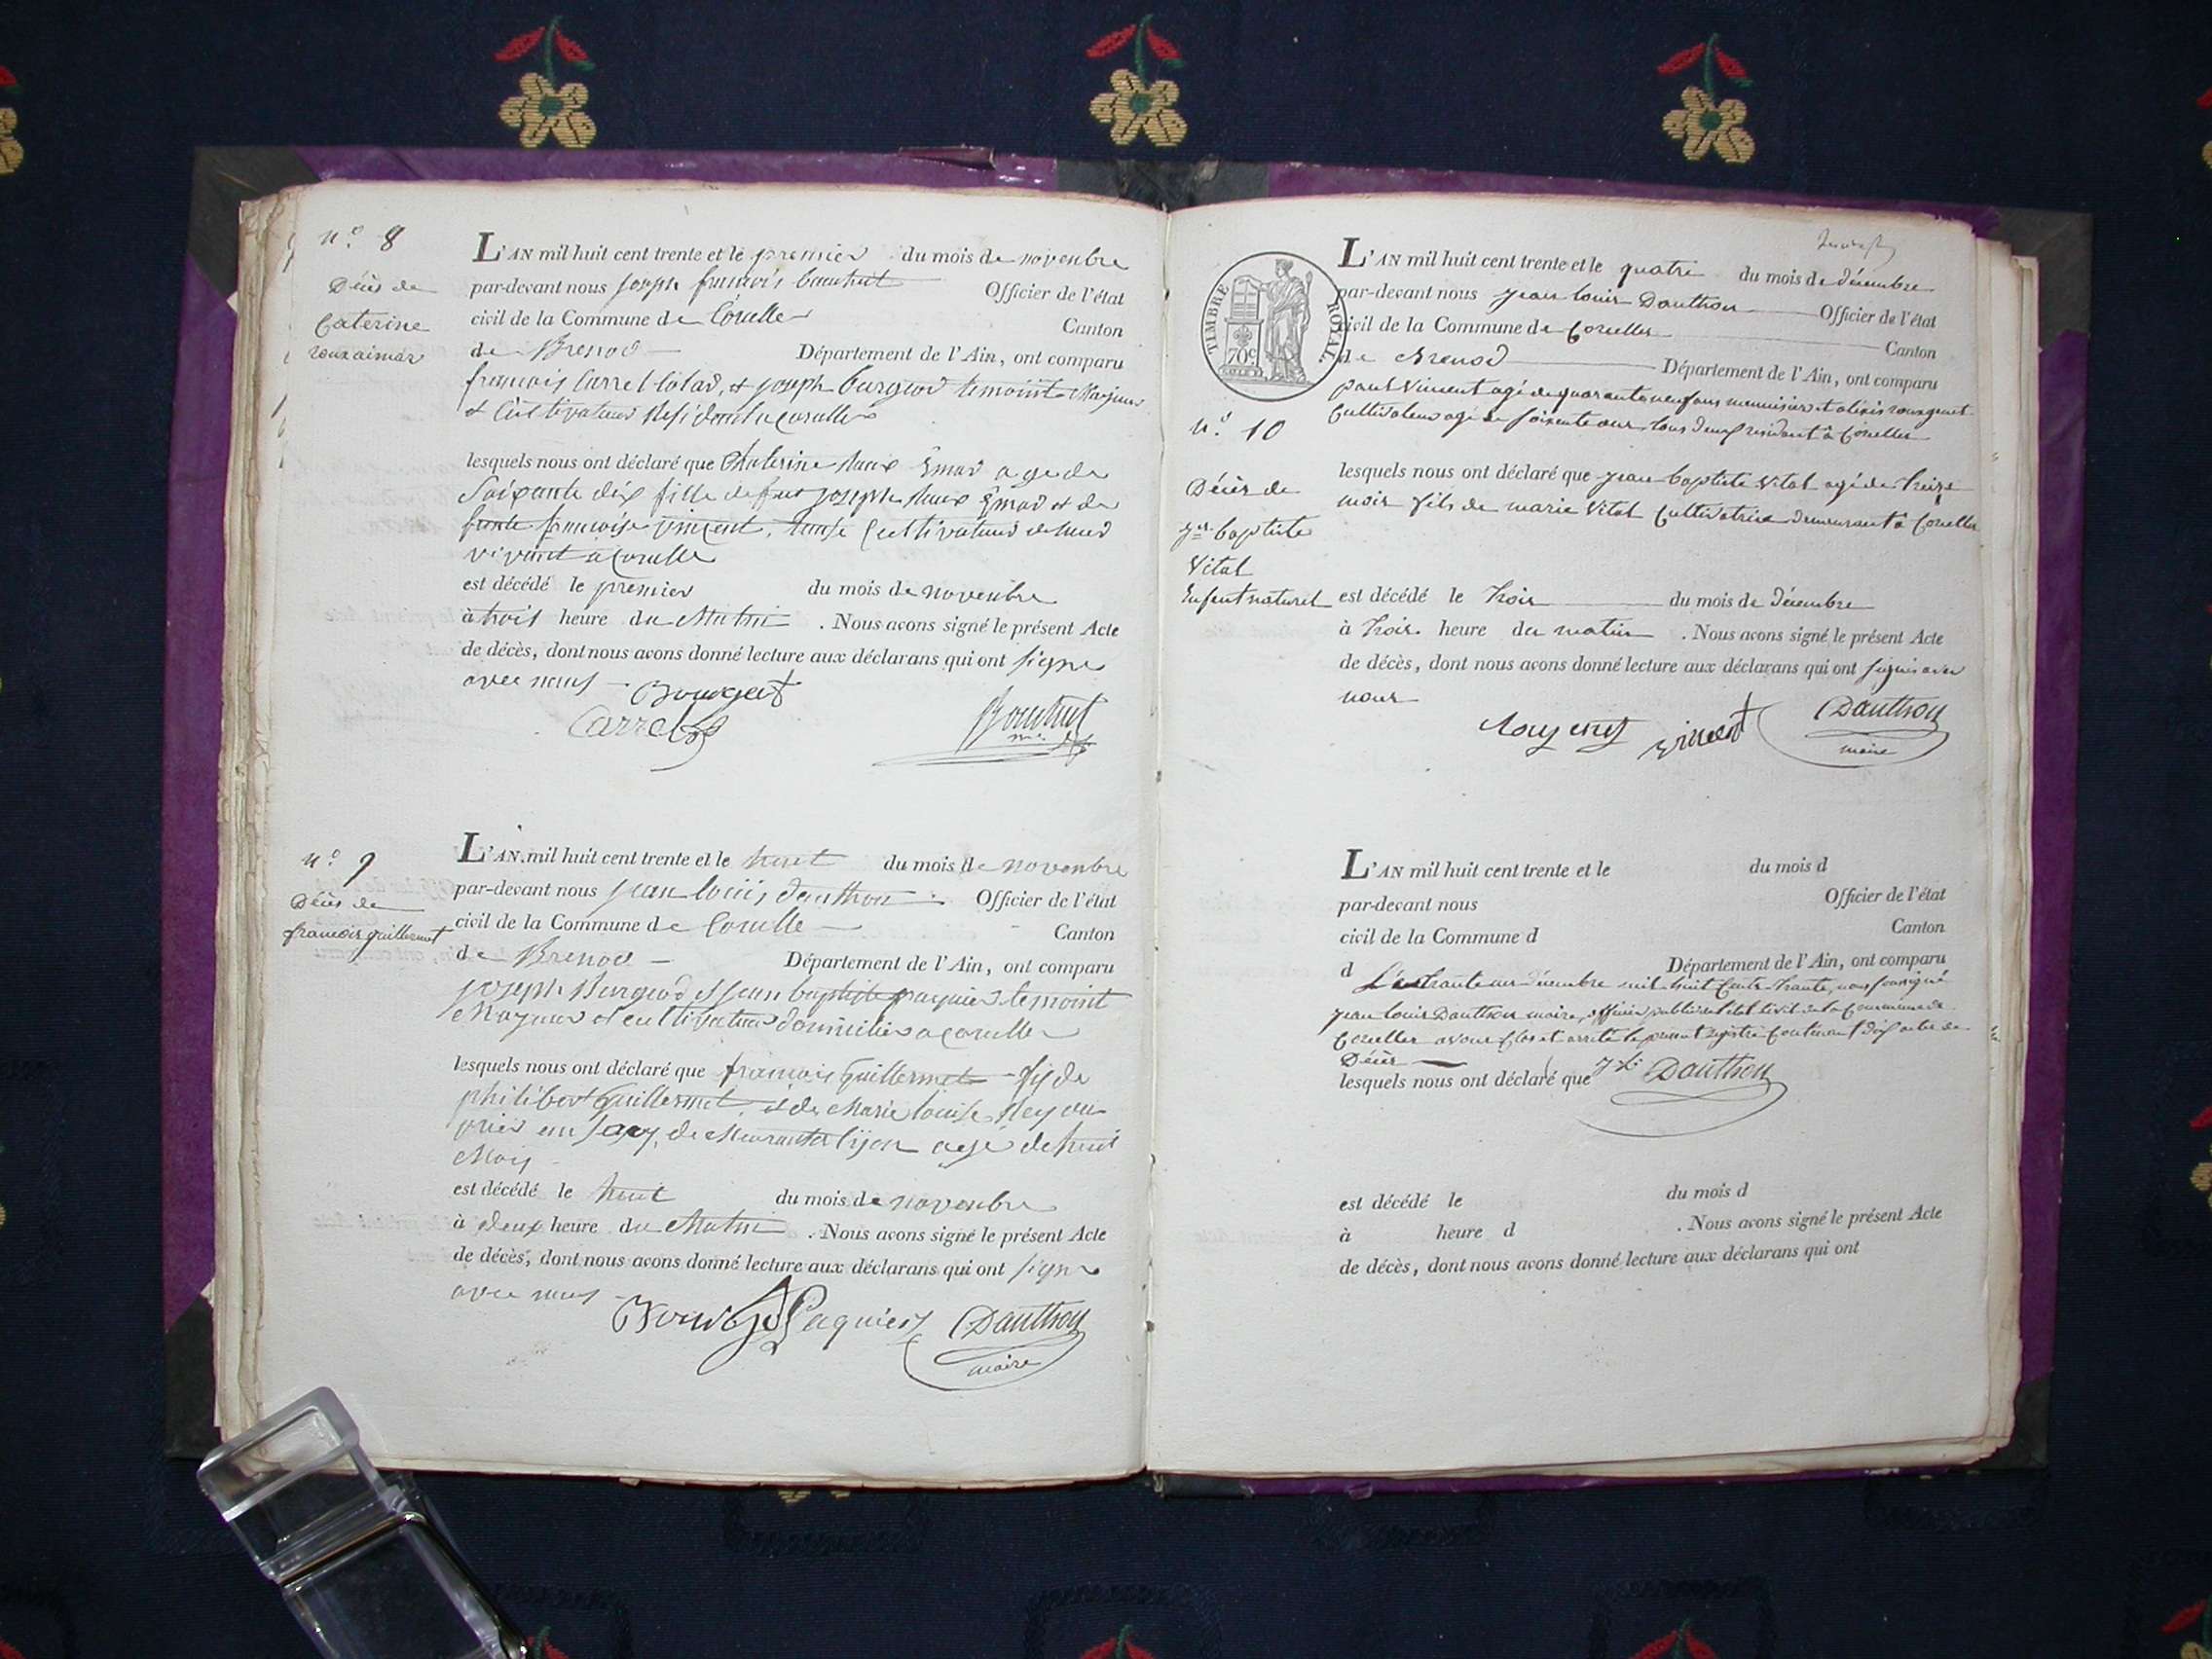 n.o 8
Décès de
Caterine
roux aimar
L'AN mil huit cent trente et le premier du mois de novembre
par-devant nous joseph francois Officier de l'état
civil de la Commune de Corcelle Canton
de Brenod Département de l'Ain, ont comparu
francois Carrel et joseph temoint Majeur
et Cultivateur a Corcelle
lesquels nous ont déclaré que Chaterine Roux Emard agé de
Soixante dix fille de feu joseph Roux Emard et de
francoise vincent, Cultivateur
vivant a Corcelle
est décédé le premier du mois de novembre
à trois heure du Matin . Nous avons signé le présent Acte
de décès, dont nous avons donné lecture aux déclarans qui ont signe
avec nous
Bourgeat
Carrel
n.o 9
Décès de
francois guillermet
L'AN mil huit cent trente et le huit du mois de novembre
par-devant nous jean louis dauthon Officier de l'état
civil de la Commune de Corcelle Canton
de Brenod Département de l'Ain, ont comparu
joseph et jean baptiste paquier temoint
Majeur et cultivateur domicilies a corcelle
lesquels nous ont déclaré que francois Guillermet fis de
philibert Guillermet et de Marie louise
de Lyon agé de huit
Mois
est décédé le huit du mois de novembre
à deux heure du Matin . Nous avons signé le présent Acte
de décès, dont nous avons donné lecture aux déclarans qui ont signe
avec nous
Paquier Dauthon
maire
TIMBRE ROYAL
70c
n.o 10
Décès de
jn baptiste
Vital
Enfant naturel
L'AN mil huit cent trente et le quatre du mois de décembre
par-devant nous jean louis Dauthon Officier de l'état
civil de la Commune de Corcelles Canton
de Brenod Département de l'Ain, ont comparu
paul Vincent agé de quarante neuf ans menuisier et alexis rougemt
Cultivateur agé de soixante ans tous deux residant à Corcelles
lesquels nous ont déclaré que jean baptiste Vital agé de treize
mois fils de marie Vital Cultivatrice demeurant à Corcelles
est décédé le trois du mois de décembre
à trois heure du matin . Nous avons signé le présent Acte
de décès, dont nous avons donné lecture aux déclarans qui ont signés avec
nous
vincent Dauthon
maire
L'AN mil huit cent trente et le du mois d
par-devant nous Officier de l'état
civil de la Commune d Canton
d Département de l'Ain, ont comparu
trente un décembre mil huit Cent trente, nous soussigné
jean louis Dauthon maire, officier public de l'état Civil de la Commune de
Corcelles avons Clos et arrêté le present registre Contenant dix actes de
Décès
lesquels nous ont déclaré que Dauthon
est décédé le du mois d
à heure d . Nous avons signé le présent Acte
de décès, dont nous avons donné lecture aux déclarans qui ont